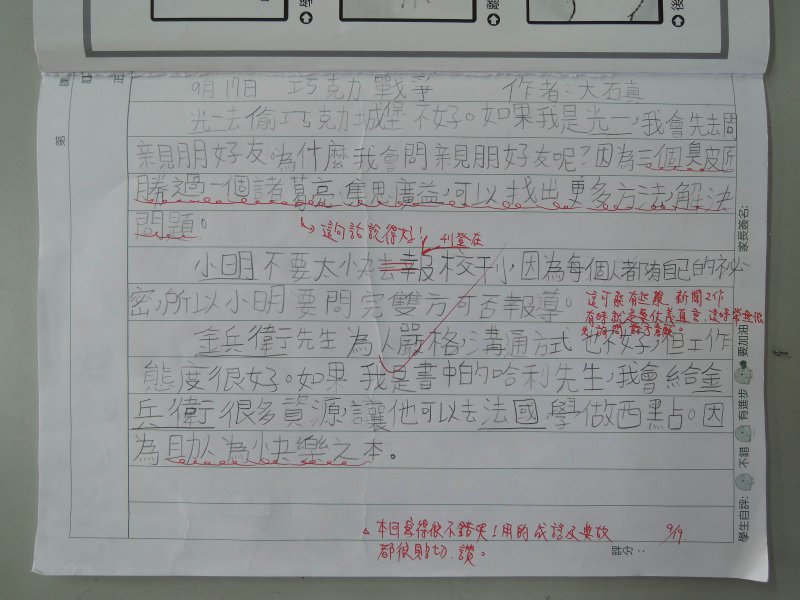 學
離
後
課
第
9月17日 巧克力戰爭 作者:大石真
光一去偷巧克力城堡不好。如果我是光一,我會先去問
親朋好友,為什麼我會問親朋好友呢?因為三個臭皮匠
勝過一個諸葛亮,集思廣益,可以找出更多方法解決
問題。
這句話說得太好! 刊登在
小明不要太快去報校刊,因為每個人都有自己的祕
密,所以小明要問完雙方可否報導。
這可能有些難,新聞工作
金兵衛先生為人嚴格,溝通方式也不好,但工作
態度很好。如果我是書中的哈利先生,我會給金
兵衛很多資源,讓他可以去法國學做西點。因
為助人為快樂之本。
本日寫得很不錯哭!用的成語及典故 9/19.
都很貼切,讚。
評分:
家長簽名:
學生自評: 不錯 有進步 要加油